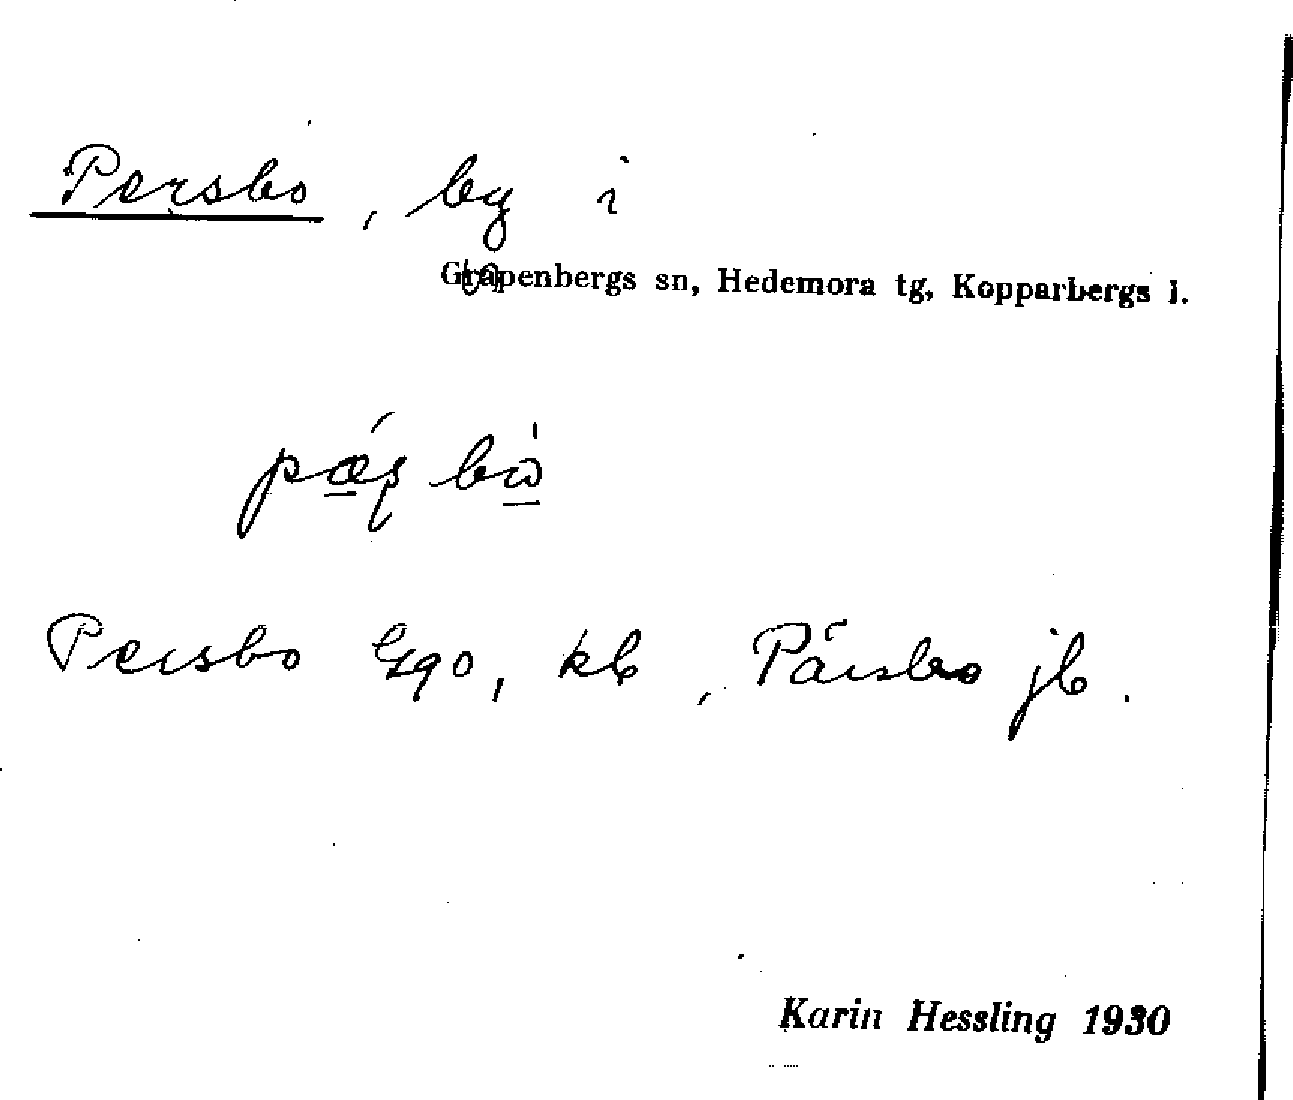 Persbo, by i
Grapenbergs sn, Hedemora tg, Kopparbergs l.
Persbo kb, Pärsbo jb.
Karin Hessling 1930